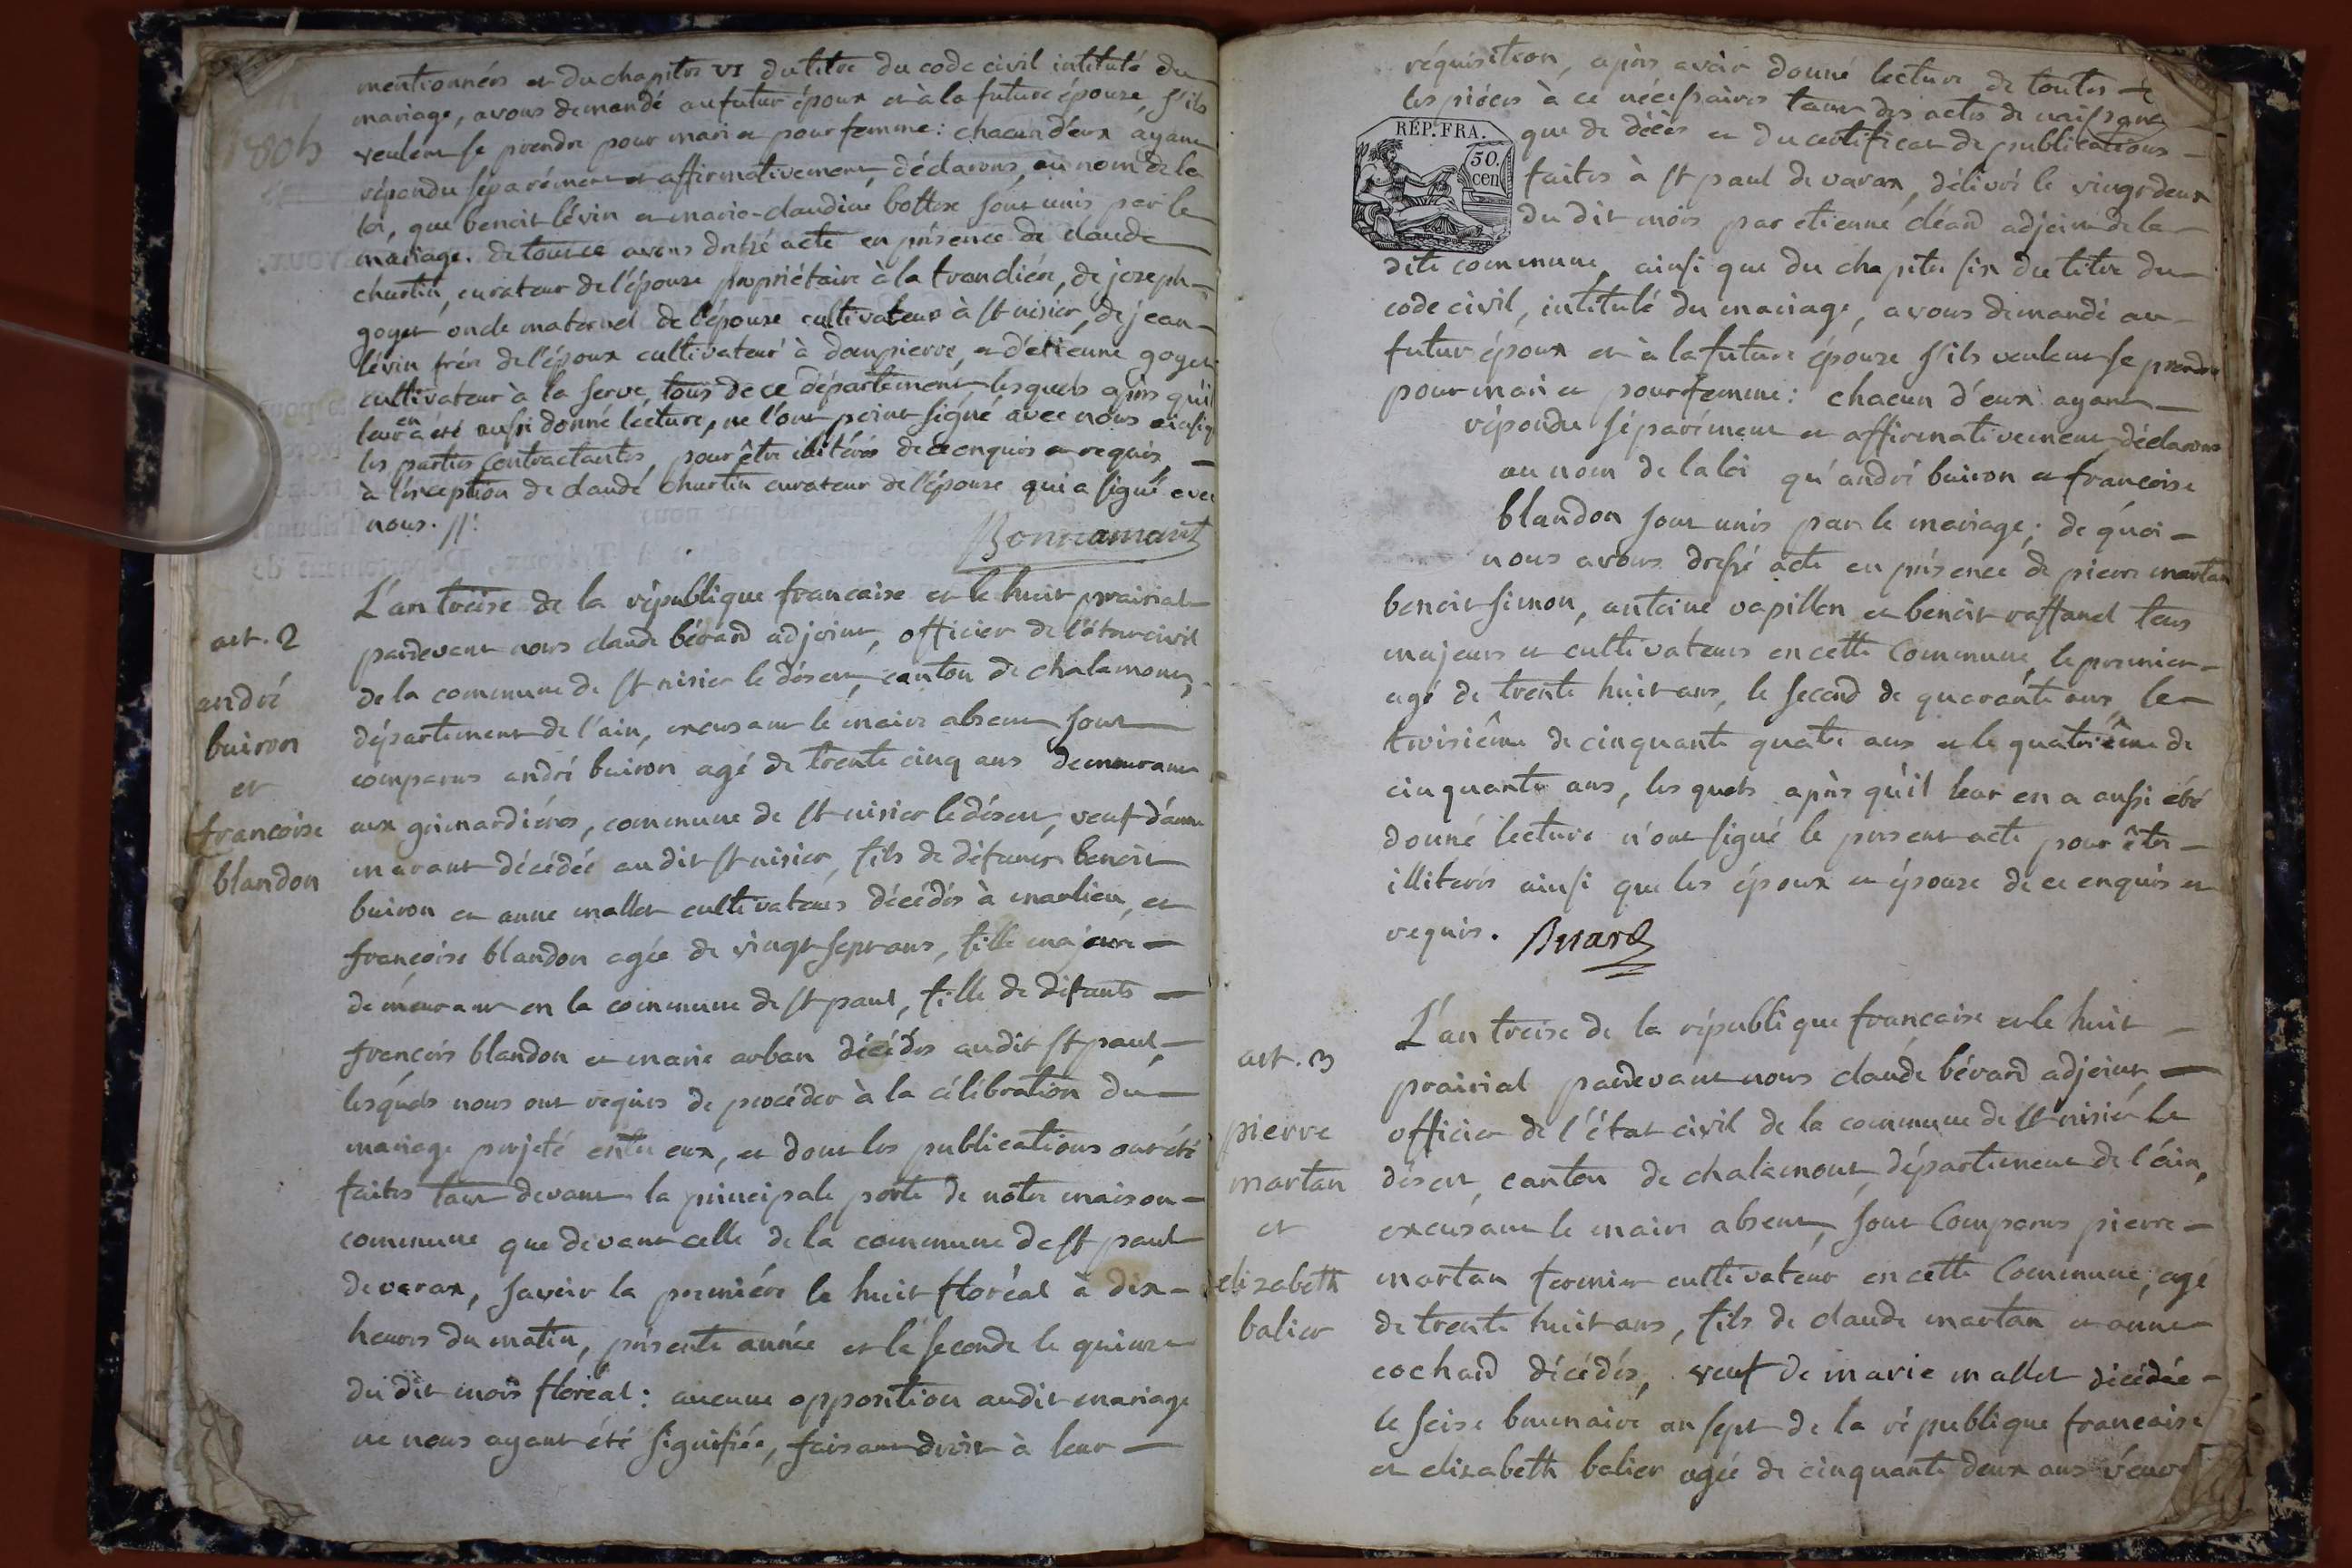 mentionnées et du chapitre VI du titre du code civil intitulé du
mariage, avons demandé au futur époux et à la future épouse, s'ils
veulent se prendre pour mari et pour femme: chacun d'eux ayant
répondu séparément et affirmativement, déclarons, au nom de la
loi, que benoit lévin et marie-claudine bottex sont unis par le
mariage. de tout ce avons dressé acte en présence de claude
churtin, curateur de l'épouse propriétaire à la trandiére, de joseph
goyet oncle maternel de l'épouse cultivateur à st nisier, de jean
lévin frére de l'époux cultivateur à dompierre, et d'etienne goyet
cultivateur à la serve, tous de ce département, lesquels aprés qu'il
leur en a été aussi donné lecture, ne l'ont point signé avec nous ainsi q
les parties contractantes, pour être illitérés de ce enquis et requis
à l'exception de claude churtin curateur de l'épouse qui a signé avec
nous. //:
Bonnamant
1805
art. 2
andré
buiron
et
francoise
blandon
L'an treise de la république francaise et le huit prairial
pardevant nous claude bévard adjoint, officier de l'état civil
de la commune de st nisier le désert, canton de chalamont,
département de l'ain, excusant le maire absent sont
comparus andré buiron agé de trente cinq ans demeurant
aux guinardiéres, commune de st nisier le désert, veuf d'anne
marant décédée au dit st nisier, fils de défunts benoit
buiron et anne mallet cultivateurs décédés à marlieu, et
françoise blandon agée de vingt sept ans, fille majeure
demeurant en la commune de st paul, fille de défunts
françois blandon et marie arban décédés au dit st paul,
lesquels nous ont requis de procéder à la célébration du
mariage projeté entre eux, et dont les publications ont été
faites tant devant la principale porte de notre maison
commune que devant celle de la commune de st paul
de varax, savoir la premiére le huit floréal à dix
heures du matin, présente année et la seconde le quinze
du dit mois floréal: aucune opposition au dit mariage
ne nous ayant été signifiée, faisant droit à leur
réquisition, aprés avoir donné lecture de toutes
les piéces à ce nécessaires tant des actes de naissance
RÉP. FRA.
50.
cen
que de décés et du certificat de publications
faites à st paul de varax, délivré le vingt deux
du dit mois par etienne déard adjoint de la
dite commune, ainsi que du chapitre six du titre du
code civil, intitulé du mariage, avons demandé au
futur époux et à la future épouse s'ils veulent se prendre
pour mari et pour femme: chacun d'eux ayant
répondu séparément et affirmativement, déclarons
au nom de la loi qu'andré buiron et francoise
blandon sont unis par le mariage; de quoi
nous avons dressé acte en présence de pierre martan
benoit simon, antoine vapillon et benoit raffanel tous
majeurs et cultivateurs en cette commune, le premier
agé de trente huit ans, le second de quarante ans, le
troisiême de cinquante quatre ans et le quatriême de
cinquante ans, les quels aprés qu'il leur en a aussi été
donné lecture n'ont signé le présent acte pour être
illiterés ainsi que les époux et épouse de ce enquis et
requis. Bévard
art. 3
pierre
martan
et
elizabeth
balier
L'an treise de la république francaise et le huit
prairial pardevant nous claude bévard adjoint,
officier de l'état civil de la commune de st nisier le
désert, canton de chalamont, département de l'ain,
excusant le maire absent, sont comparus pierre
martan fermier cultivateur en cette commune, agé
de trente huit ans, fils de claude martan et anne
cochard décédés, veuf de marie mallet décédée
le seise brumaire an sept de la république francaise
et elizabeth balier agée de cinquante deux ans veuve